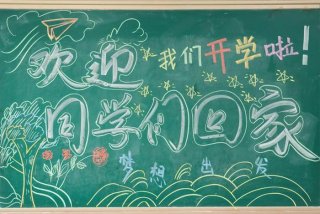 欢迎 我们开学啦！
同学们回家
梦想出发